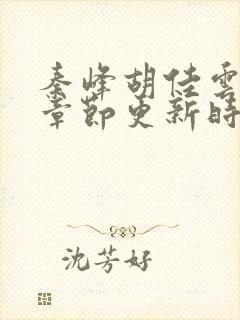 秦峰胡佳雲
章節更新時
沈芳好